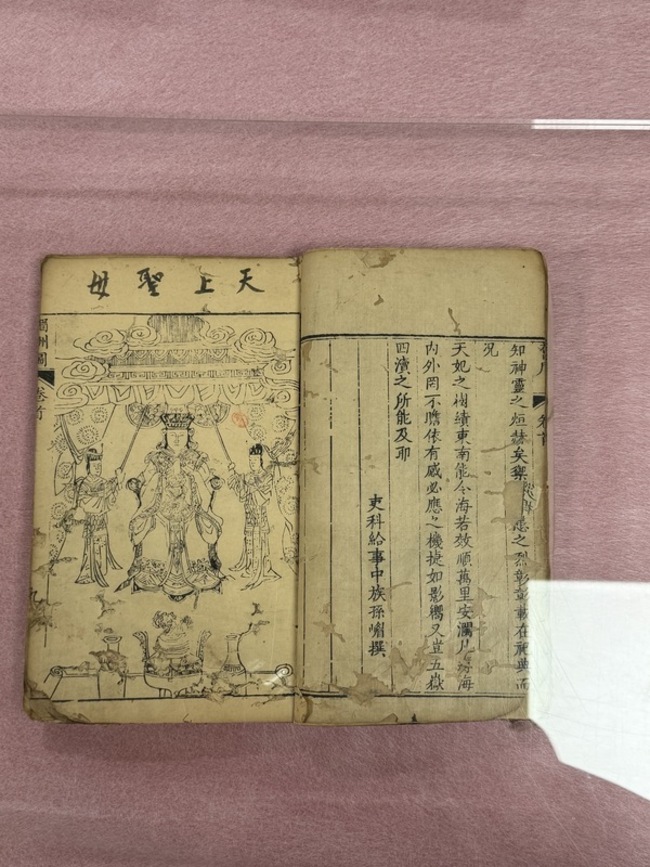 知神靈之烜赫矣禦患之烈彰彰載在祀典而
况
天妃之樹績東南能令海若效順萬里安瀾凡海
内外罔不瞻依有感必應之機捷如影嚮又豈五嶽
四瀆之所能及耶
吏科給事中族孫嵋撰
天上聖母
州圖
卷首